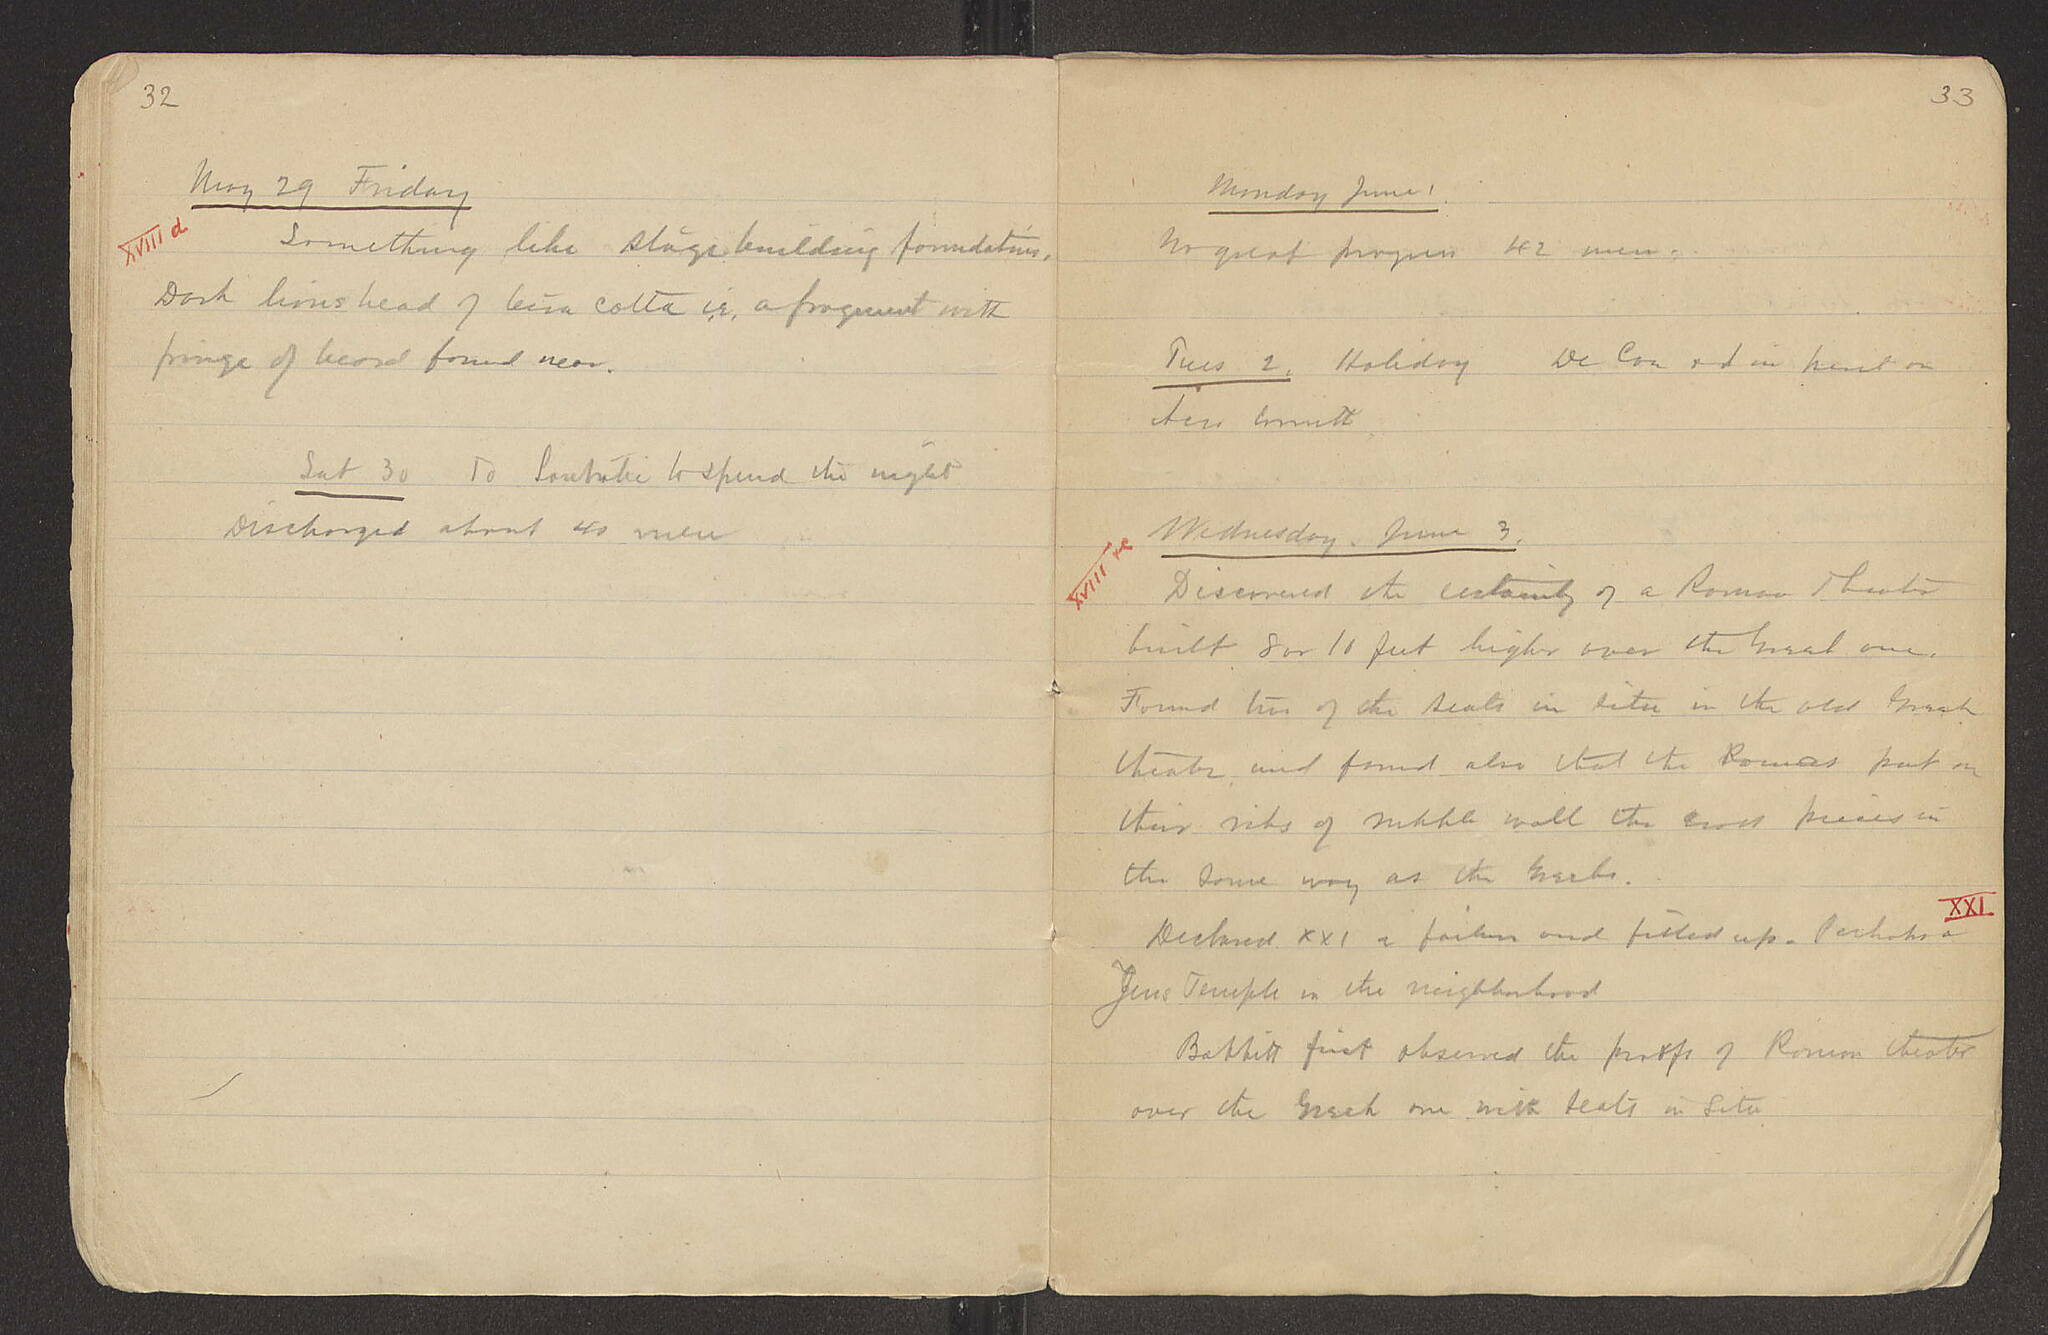 32
May 29 Friday
XVIII d
Something like stage building foundations.
Dark lions head of terra cotta i.e. a fragment with
fringe of beard found near.
Sat 30 To Loutraki to spend the night
Discharged about 40 men
33
Monday June 1.
No great progress 42 men.
Tues 2. Holiday De Cou and in on
New Corinth
Wednesday. June 3.
XVIII
Discovered the certainty of a Roman Theater
built 8 or 10 feet higher over the Greek one.
Found two of the seats in situ in the old Greek
theater and found also that the Romans put on
their ribs of rubble wall the cross pieces in
the same way as the Greeks.
XXI
Declared XXI a failure and filled up. Perhaps a
Zeus Temple in the neighborhood
Babbitt first observed the proofs of Roman theater
over the Greek one with seats in situ